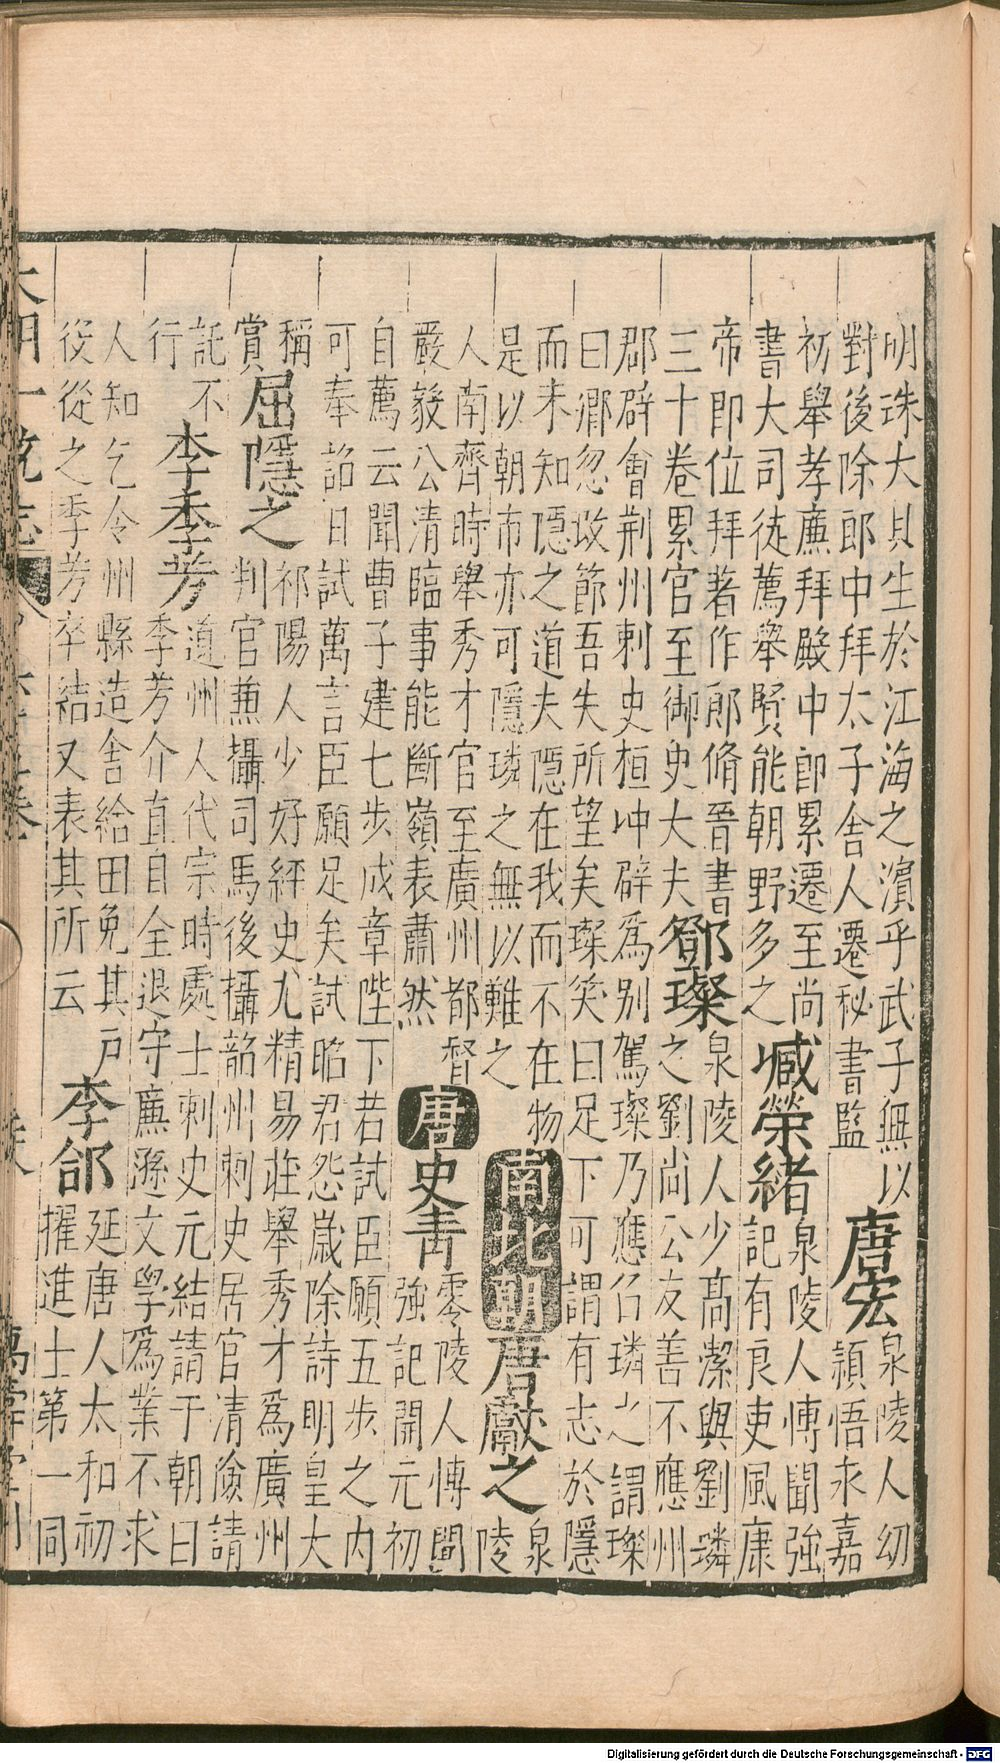 明珠大貝生於江海之濱乎武子無以
對後除郎中拜太子舍人遷秘書監
唐宏
泉陵人幼
穎悟永嘉
初舉孝廉拜殿中郎累遷至尚
書大司徒薦舉賢能朝野多之
臧榮緒
泉陵人愽聞強
記有良吏風康
帝即位拜著作郎脩晉書
三十卷累官至御史大夫
鄧璨
泉陵人少髙潔與劉璘
之劉尚公友善不應州
郡辟會荆州刺史桓冲辟爲別駕璨乃應召璘之謂璨
曰卿忽攺節吾失所望矣璨笑曰足下可謂有志於隱
而未知隱之道夫隱在我而不在物
是以朝市亦可隱璘之無以難之
南北朝
唐獻之
泉
陵
人南齊時舉秀才官至廣州都督
嚴毅公清臨事能斷嶺表肅然
唐
史青
零陵人愽聞
強記開元初
自薦云聞曹子建七步成章陛下若試臣願五步之内
可奉詔日試萬言臣願足矣試昭君怨嵗除詩明皇大
稱
賞
屈隱之
祁陽人少好經史尤精易莊舉秀才爲廣州
判官兼攝司馬後攝韶州刺史居官清儉請
託不
行
李季芳
道州人代宗時處士刺史元結請于朝曰
季芳介直自全退守廉遜文學爲業不求
人知乞令州縣造舍給田免其戸
役從之季芳卒結又表其所云
李郃
延唐人太和初
擢進士第一同
大明一統志
Digitalisierung gefördert durch die Deutsche Forschungsgemeinschaft - DFG